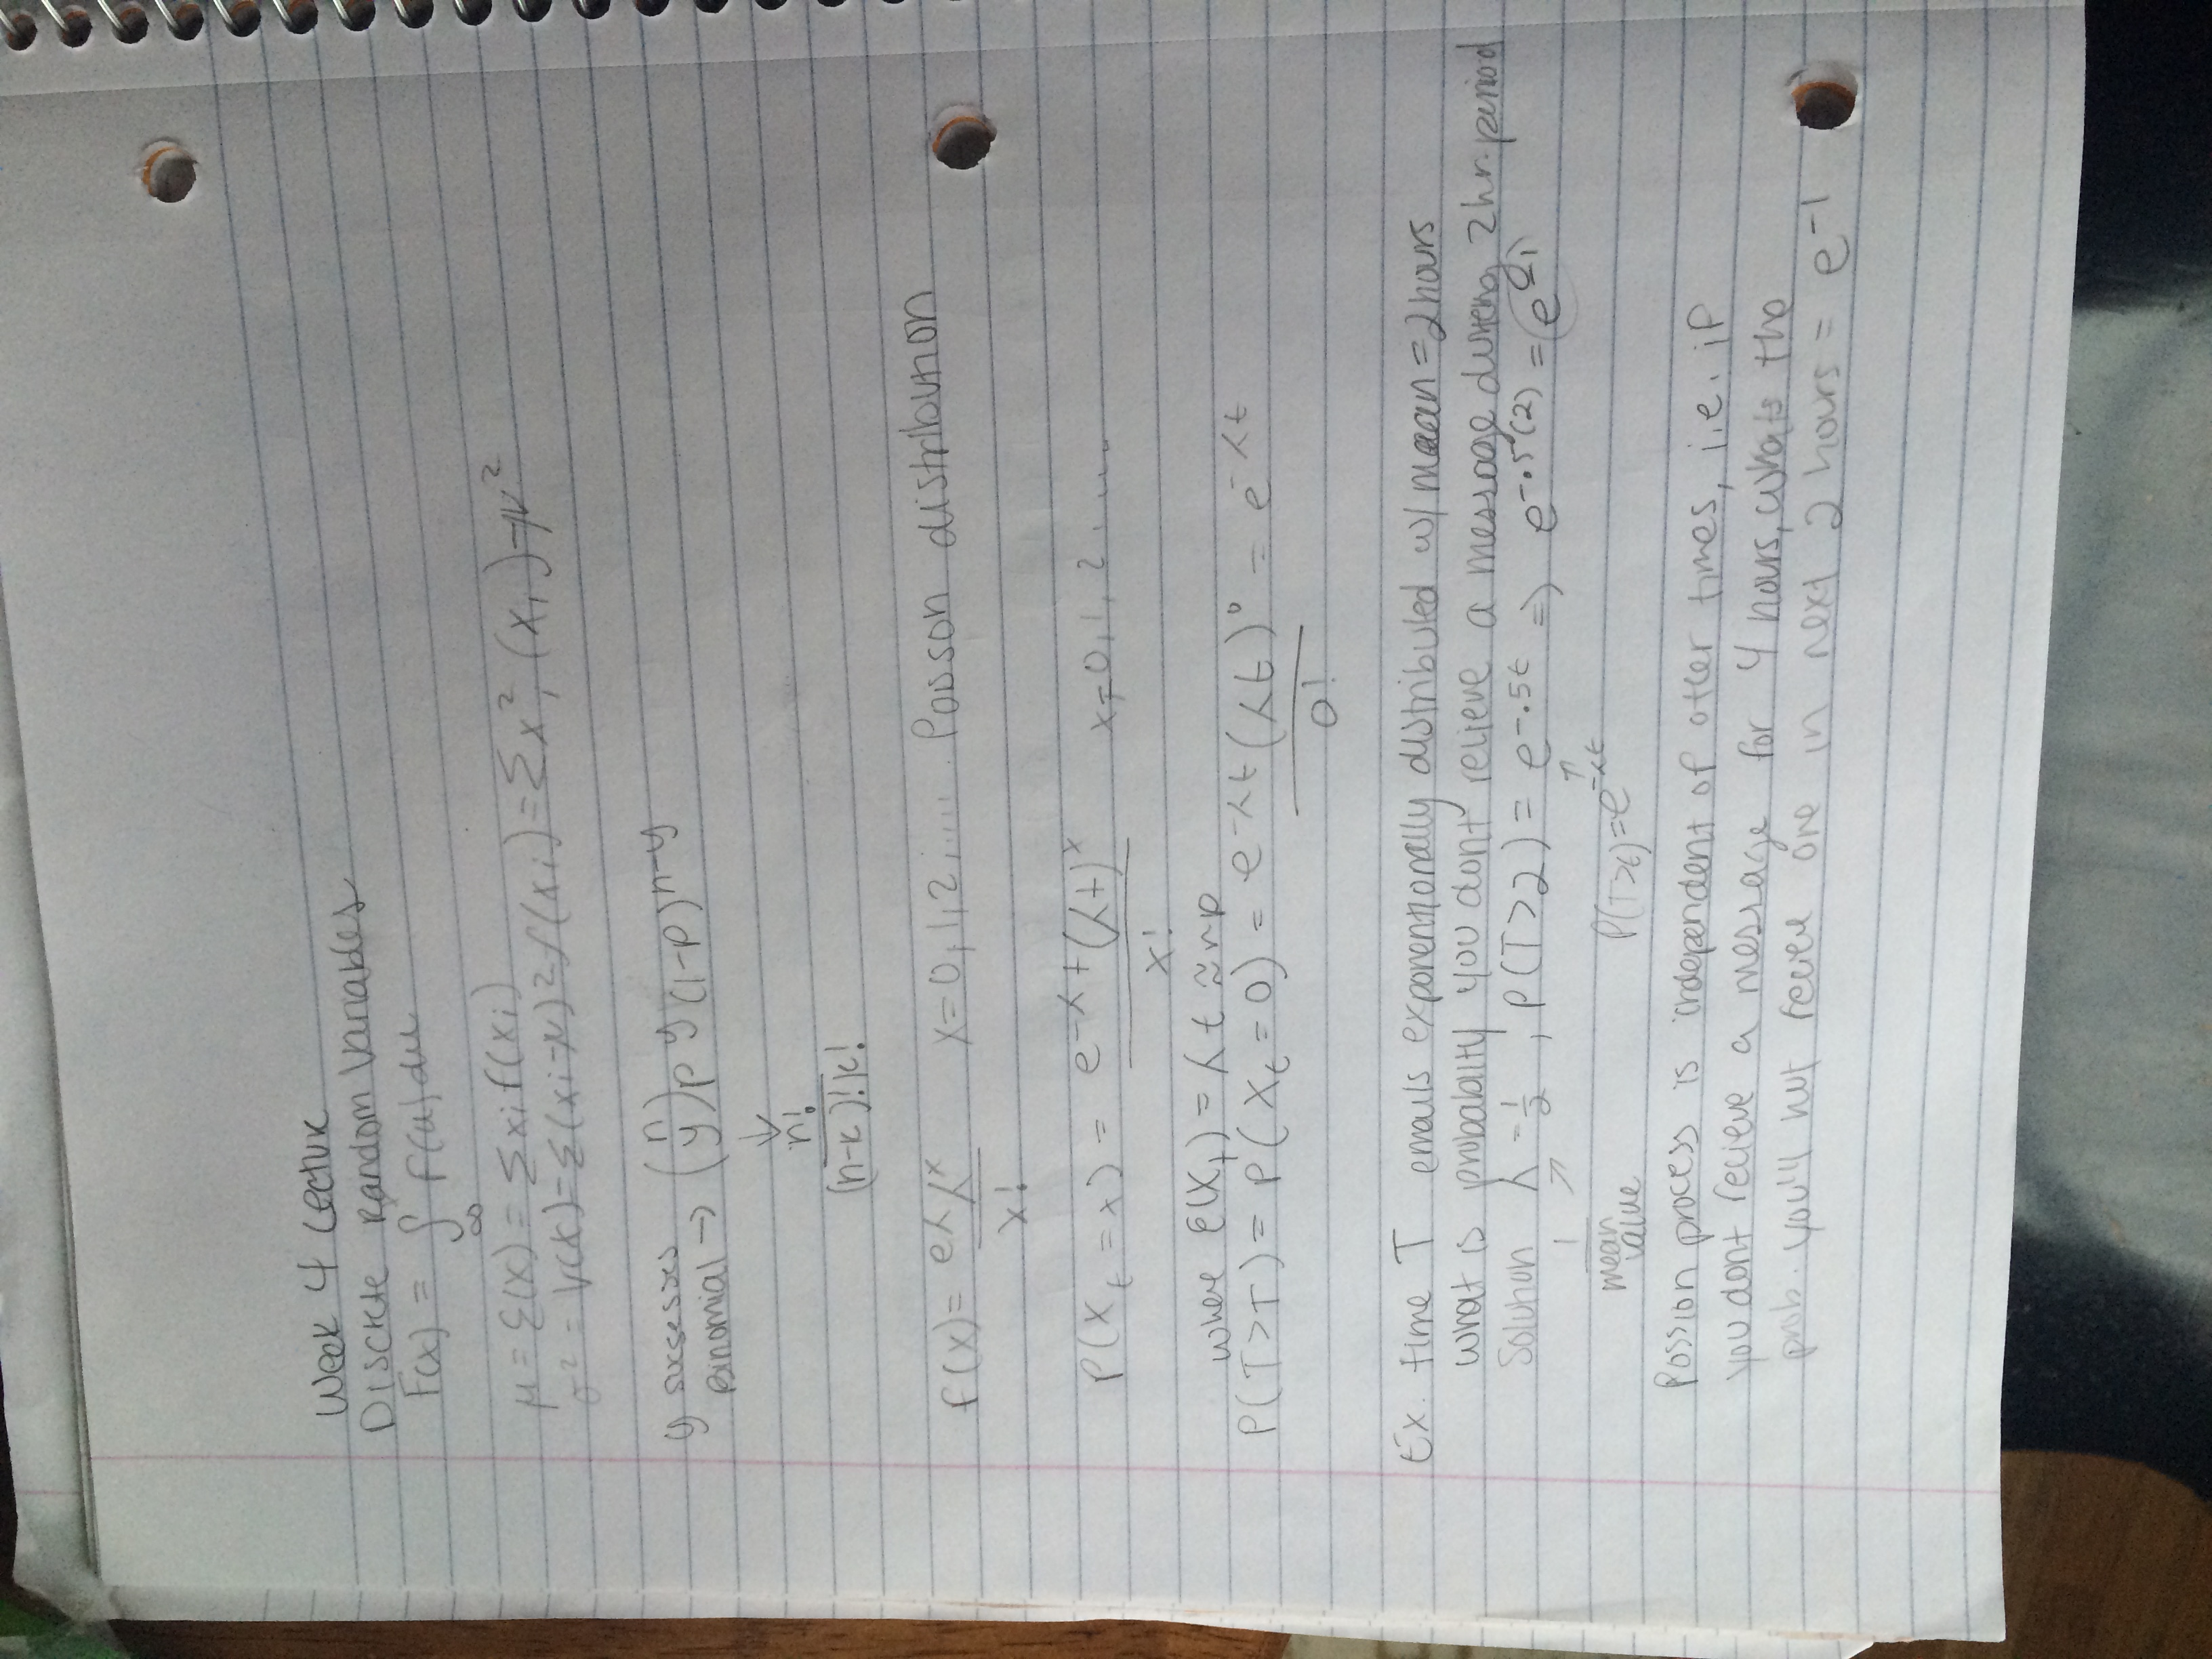 Week 4 Lecture
Discrete Random Variables
F(x) = ∫ f(u) du
∞
μ = E(x) = Σ xi f(xi)
σ² = V(x) = Σ(xi-μ)² f(xi) = Σ x²i (xi) - μ²
y sucsesses
Binomial → (n y) p y (1-p)^n-y
↓
n!
(n-k)! k!
f(x) = eλ λ^x   x = 0, 1, 2, ..... Poisson distribution
x!
P(X_t = x) = e^-λt (λt)^x   x = 0, 1, 2 .....
x!
where E(X_t) = λt ≈ np
P(T>T) = P(X_t = 0) = e^-λt (λt)^0 = e^-λt
0!
Ex. time T emails exponentionally distributed w/ mean = 2 hours
what is probability you dont relieve a message during 2 hr period
Solution λ = 1/2 , P(T>2) = e^-.5t ⇒ e^-.5(2) = e^-1
1
mean value
P(T>t) = e^-λt
Possion process is independent of otter times, i.e. if
you dont recieve a message for 4 hours, whats the
prob. you'll not receive one in next 2 hours = e^-1